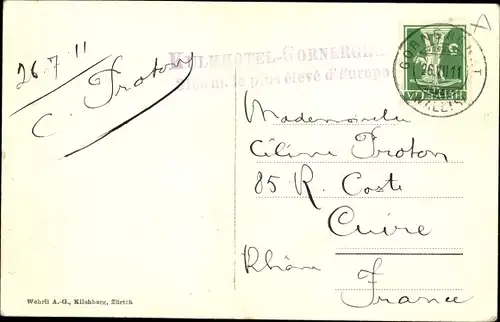 26.7.11
C. Froton
KULMHOTEL-GORNERGRAT
le plus élevé d'Europe
GORNERGRAT
26.VII.11
(WALLIS)
Mademoiselle
Céline Froton
85 R. Coste
Cuire
Rhône
France
Wehrli A.-G., Kilchberg, Zürich